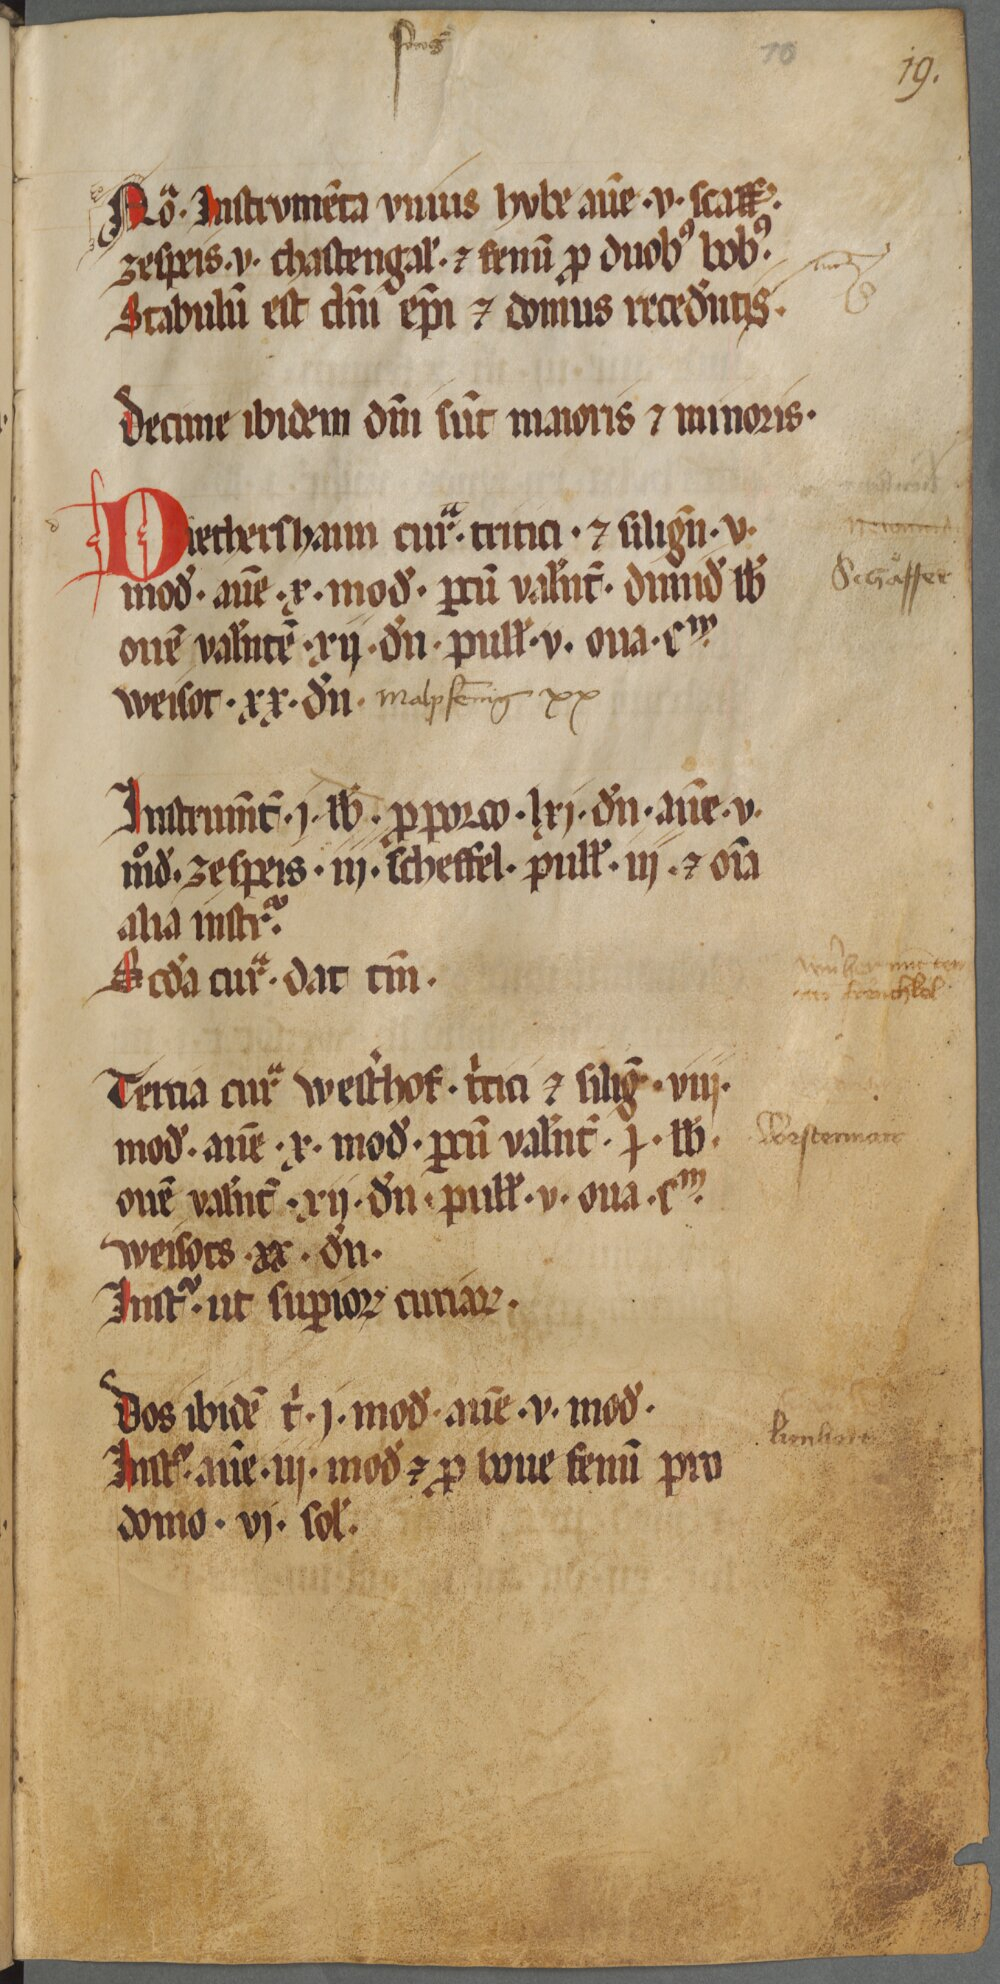 19.
Noͣ. Instrvmēta vnius hvbe auē ·v· scaff.
zespeis ·v· chastengal̄ · ⁊ fenū ꝓ duobꝰ bobꝰ.
Stabulū est dn̄i ep̄i ⁊ domus recedētis.
Decime ibidem dn̄i sūt maioris ⁊ minoris.
Diethershaim curͣ · tritici · ⁊ siligī · v·
mod̄ · auē · x · mod̄ · porcū val̄nt̄ · dimid̄ lb̄
ouē val̄ntē · xij · dn̄ · pull̄ · v· oua · Cᵐ.
weisot · xx · dn̄ · malpfēnig xx
Schäffer
Instrumēt̄ · j · lb̄ · ꝓ porco · lxj · dn̄ · auē · v·
mod̄ · zespeis · iij · scheffel · pull̄ · iij · ⁊ oīa
alia instrͣ.
Scd̄a curͣ · dat tm̄ ·
Tercia curͣ westhof · tͥtici ⁊ siliḡ · viij·
mod̄ · auē · x · mod̄ · porcū val̄nt̄ · j · lb̄ ·
Vorsterman
ouē val̄nt̄ · xij · dn̄ · pull̄ · v · oua · Cᵐ.
weisots · xx · dn̄ ·
Instͬ · ut superioꝝ curiaꝝ ·
Dos ibidē tͥ · j · mod̄ · auē · v · mod̄ ·
lienhart
Instͬ · auē · iij · mod̄ ⁊ ꝓ boue fenū pro
domo · vj · sol̄ ·